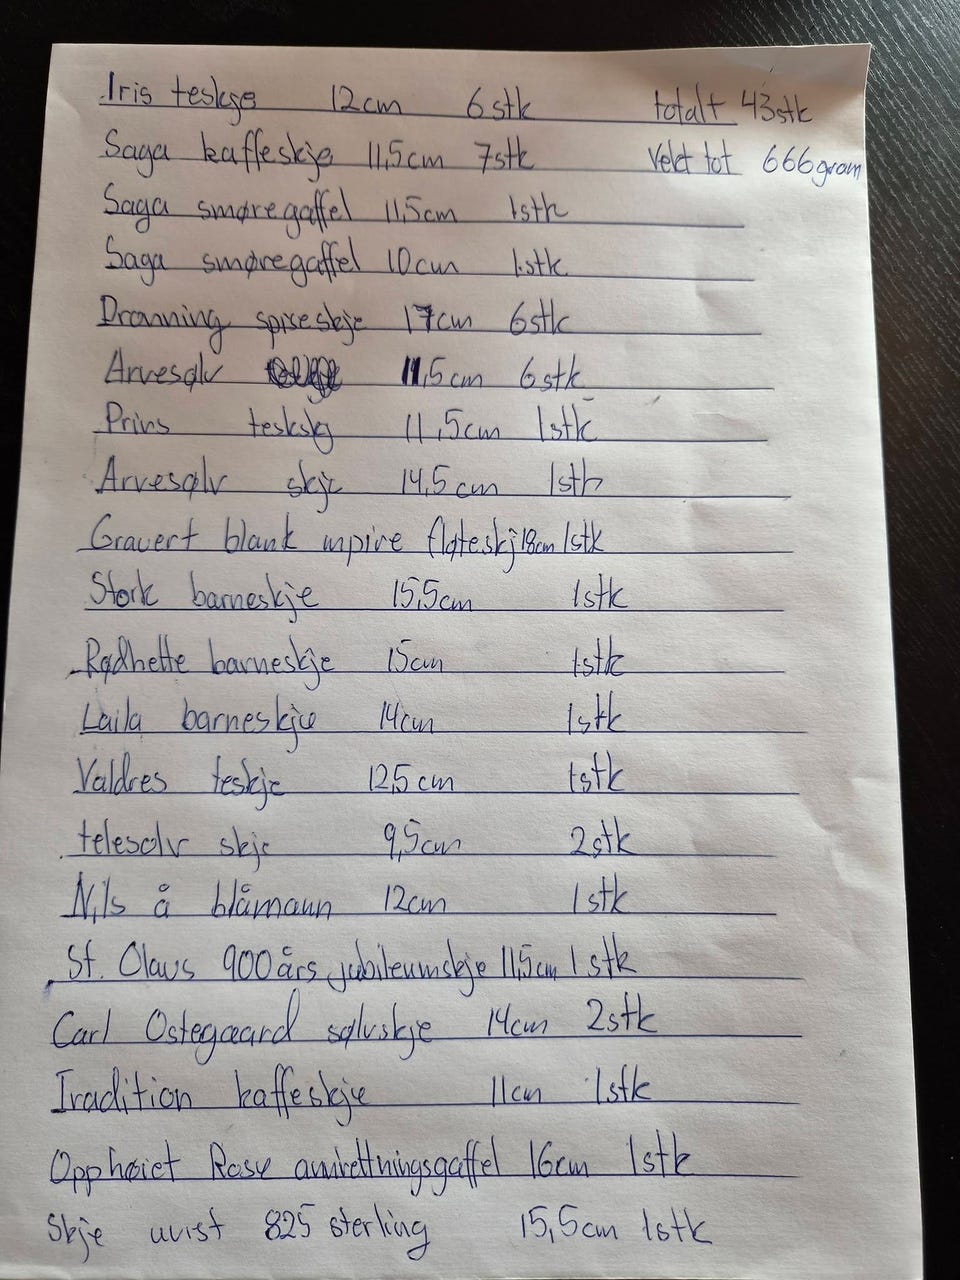 Iris teskje 12cm 6stk totalt 43stk
Saga kaffeskje 11,5cm 7stk Vekt tot 666gram
Saga smøregaffel 11,5cm 1stk
Saga smøregaffel 10cm 1stk
Dronning spiseskje 17cm 6stk
Arvesølv 11,5cm 6stk
Prins 11,5cm 1stk
Arvesølv skje 14,5cm 1stk
Gravert blank mpire fløteskj 18cm 1stk
Stork barneskje 15,5cm 1stk
Rødhette barneskje 15cm 1stk
Laila barneskje 14cm 1stk
Valdres teskje 12,5cm 1stk
telesølv skje 9,5cm 2stk
Nils å blåmann 12cm 1stk
St. Olavs 900 års jubileumskje 11,5cm 1stk
Carl Ostegaard sølvskje 14cm 2stk
Tradition kaffeskje 11cm 1stk
Opphøiet Rose anrettningsgaffel 16cm 1stk
Skje uvist 825 sterling 15,5cm 1stk